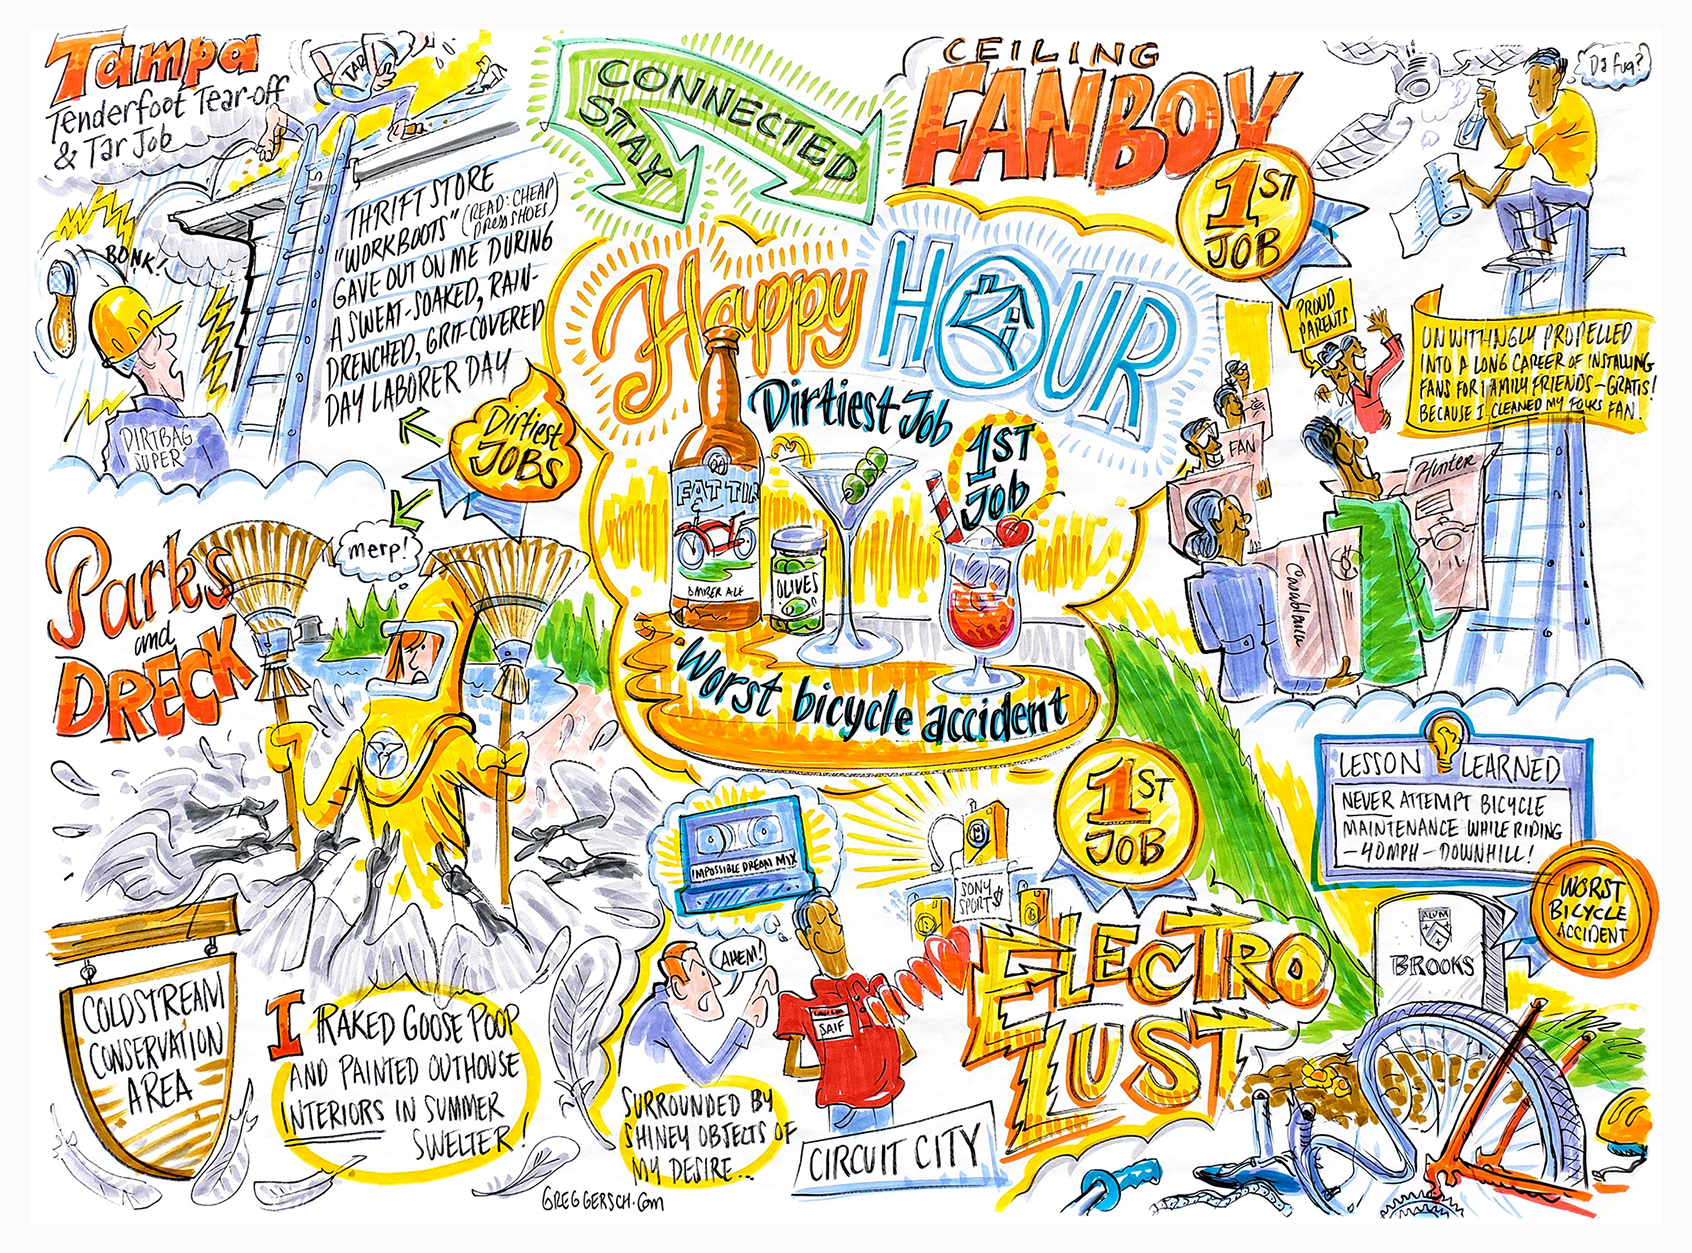 Tampa
Tenderfoot Tear-off
& Tar Job
TAR
THRIFT STORE
"WORKBOOTS" (READ: CHEAP
DRESS SHOES)
GAVE OUT ON ME DURING
A SWEAT-SOAKED, RAIN-
DRENCHED, GRIT-COVERED
DAY LABORER DAY
BONK!
DIRTBAG
SUPER
Dirtiest
JOBS
STAY
CONNECTED
CEILING
FANBOY
1ST
JOB
Da fuq?
PROUD
PARENTS
UNWITTINGLY PROPELLED
INTO A LONG CAREER OF INSTALLING
FANS FOR FAMILY FRIENDS - GRATIS!
BECAUSE I CLEANED MY FOLKS FAN.
FAN
Hunter
Casablanca
Happy HOUR
Dirtiest Job
1ST
Job
FAT TIR
AMBER ALE
OLIVES
Worst bicycle accident
Parks
and
DRECK
merp!
COLDSTREAM
CONSERVATION
AREA
I RAKED GOOSE POOP
AND PAINTED OUTHOUSE
INTERIORS IN SUMMER
SWELTER!
IMPOSSIBLE DREAM MIX
AHEM!
SONY
SPORT$
SAIF
1ST
JOB
ELECTRO
LUST
SURROUNDED BY
SHINEY OBJECTS OF
MY DESIRE...
CIRCUIT CITY
LESSON LEARNED
NEVER ATTEMPT BICYCLE
MAINTENANCE WHILE RIDING
-40MPH- DOWNHILL!
WORST
BICYCLE
ACCIDENT
ALUM
BROOKS
GREGGERSCH.COM